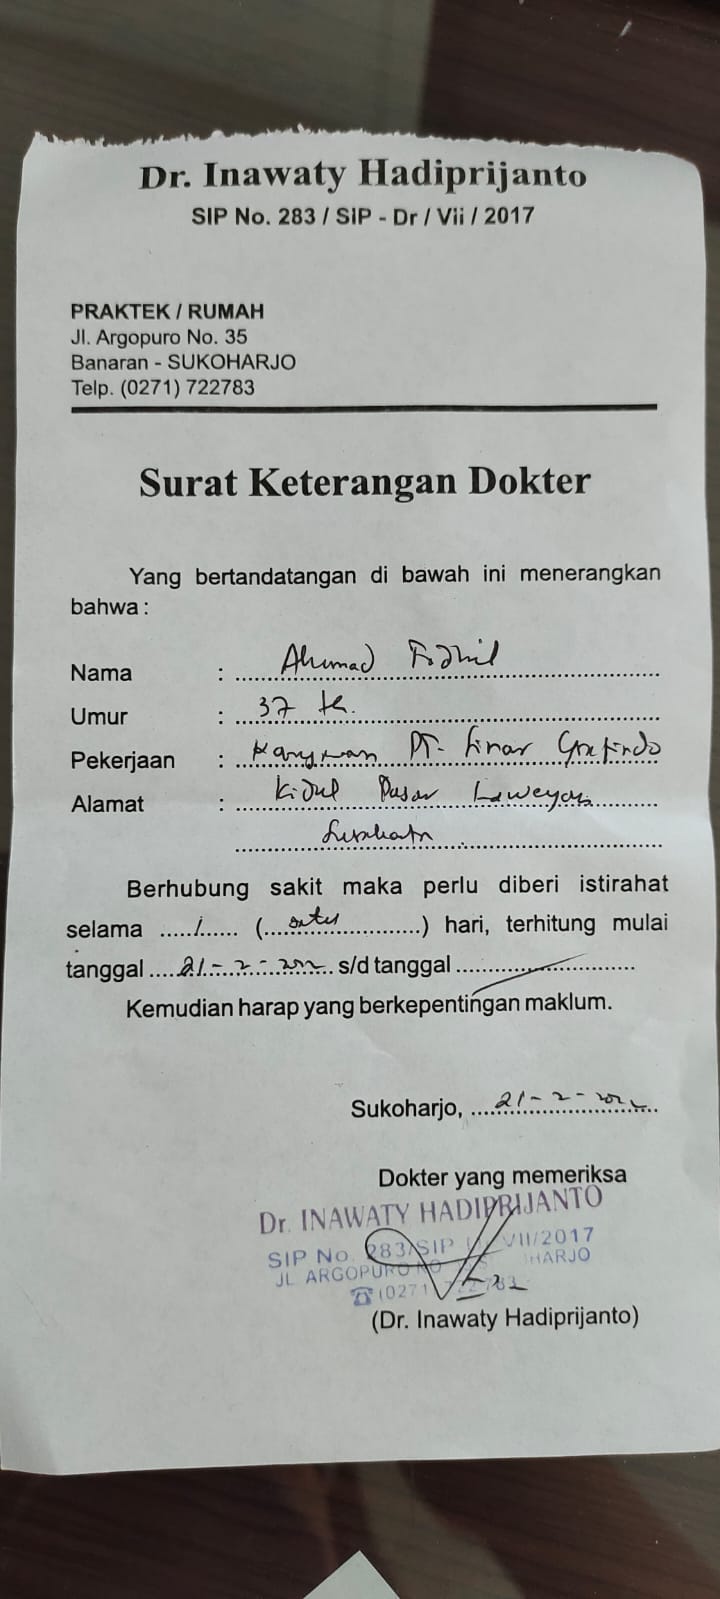 Dr. Inawaty Hadiprijanto
SIP No. 283 / SIP - Dr / Vii / 2017
PRAKTEK / RUMAH
Jl. Argopuro No. 35
Banaran - SUKOHARJO
Telp. (0271) 722783
Surat Keterangan Dokter
Yang bertandatangan di bawah ini menerangkan
bahwa :
Nama : Ahmad Fadhil
Umur : 37 th.
Pekerjaan : Karyawan PT. Sinar Grafindo
Alamat : Kidul Pasar Laweyan
Surakarta
Berhubung sakit maka perlu diberi istirahat
selama 1 (satu) hari, terhitung mulai
tanggal 21-2-2022 s/d tanggal
Kemudian harap yang berkepentingan maklum.
Sukoharjo, 21-2-2022
Dokter yang memeriksa
Dr. INAWATY HADIPRIJANTO
SIP No. 283/SIP VII/2017
JL ARGOPURO HARJO
(0271) 722783
(Dr. Inawaty Hadiprijanto)